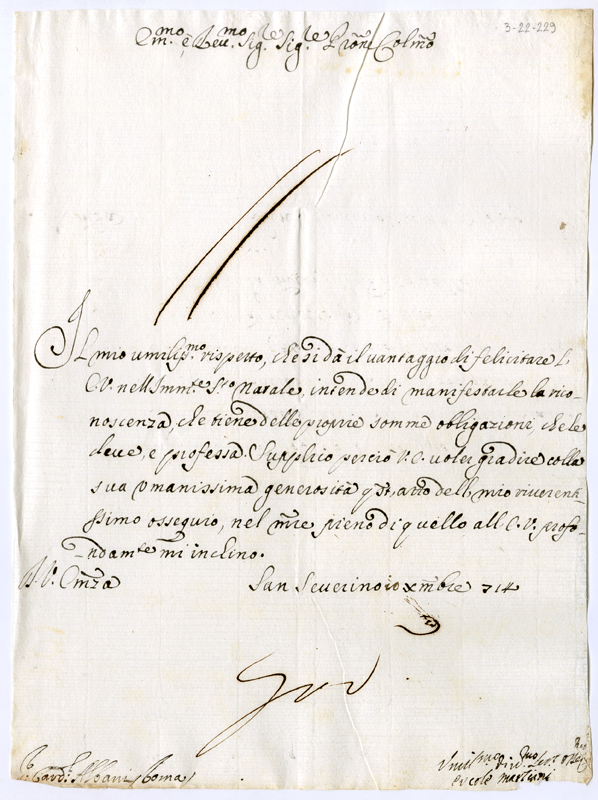 3-22-229
Em.mo è Reu.mo Sig.re Sig.re Prōne Colmõ
Il mio umiliss.mo rispetto, che si dà il vantaggio di felicitare l
E.V. nell Immte S.to Natale, intende di manifestarle la rico-
noscenza, che tiene delle proprie somme obligazioni, che le
deue, e professa. Supplico perciò V.E. voler gradire colla
sua Vmanissima generosità qsto atto dell mio riuerenti-
ssimo ossequio, nel mẽe pieno di quello all E.V. profo-
ndamte mi inchino.
D. V.ra Emza San Seuerino 10 Xmbre 714
S.r Card.l Albani Roma
Vmilmo Diu.mo
Ercole